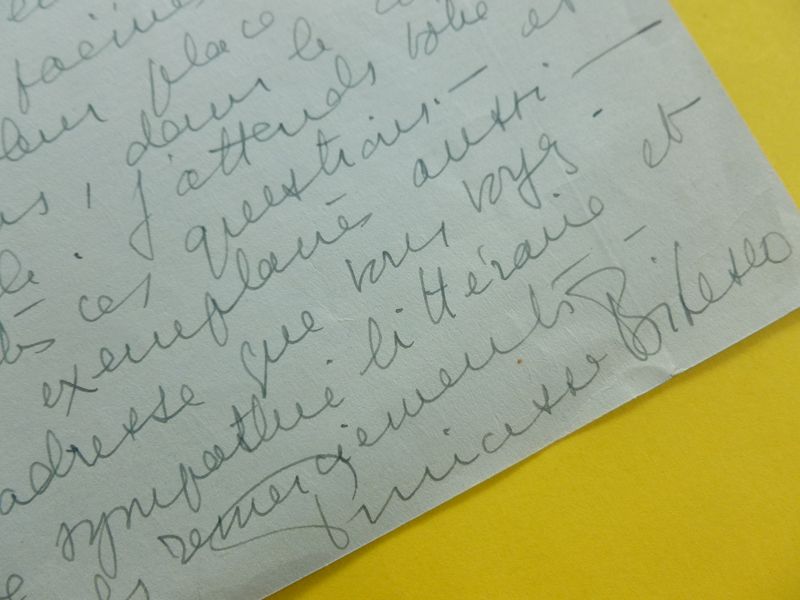 place
dans le
, j'attends votre
ces questions. —
exemplaires aussi —
adresse que vous voyez. -
sympathie littéraire et
remerciements —
Princesse Bibesco